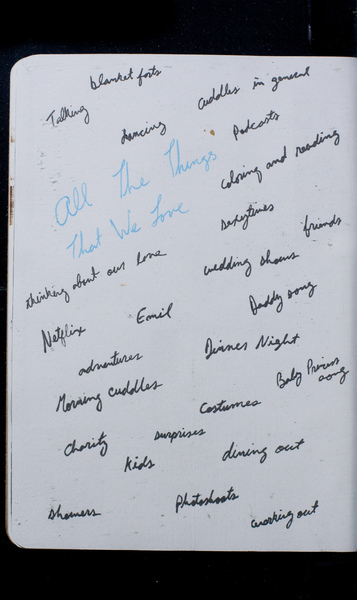 blanket forts
cuddles in general
Talking
dancing
Podcasts
coloring and reading
All The Things
That We Love
sexytimes
friends
thinking about our love
wedding shows
Daddy song
Netflix
Email
Dinner Night
adventures
Baby Princess song
Morning cuddles
costumes
Charity
surprises
Kids
dining out
showers
Photoshoots
working out